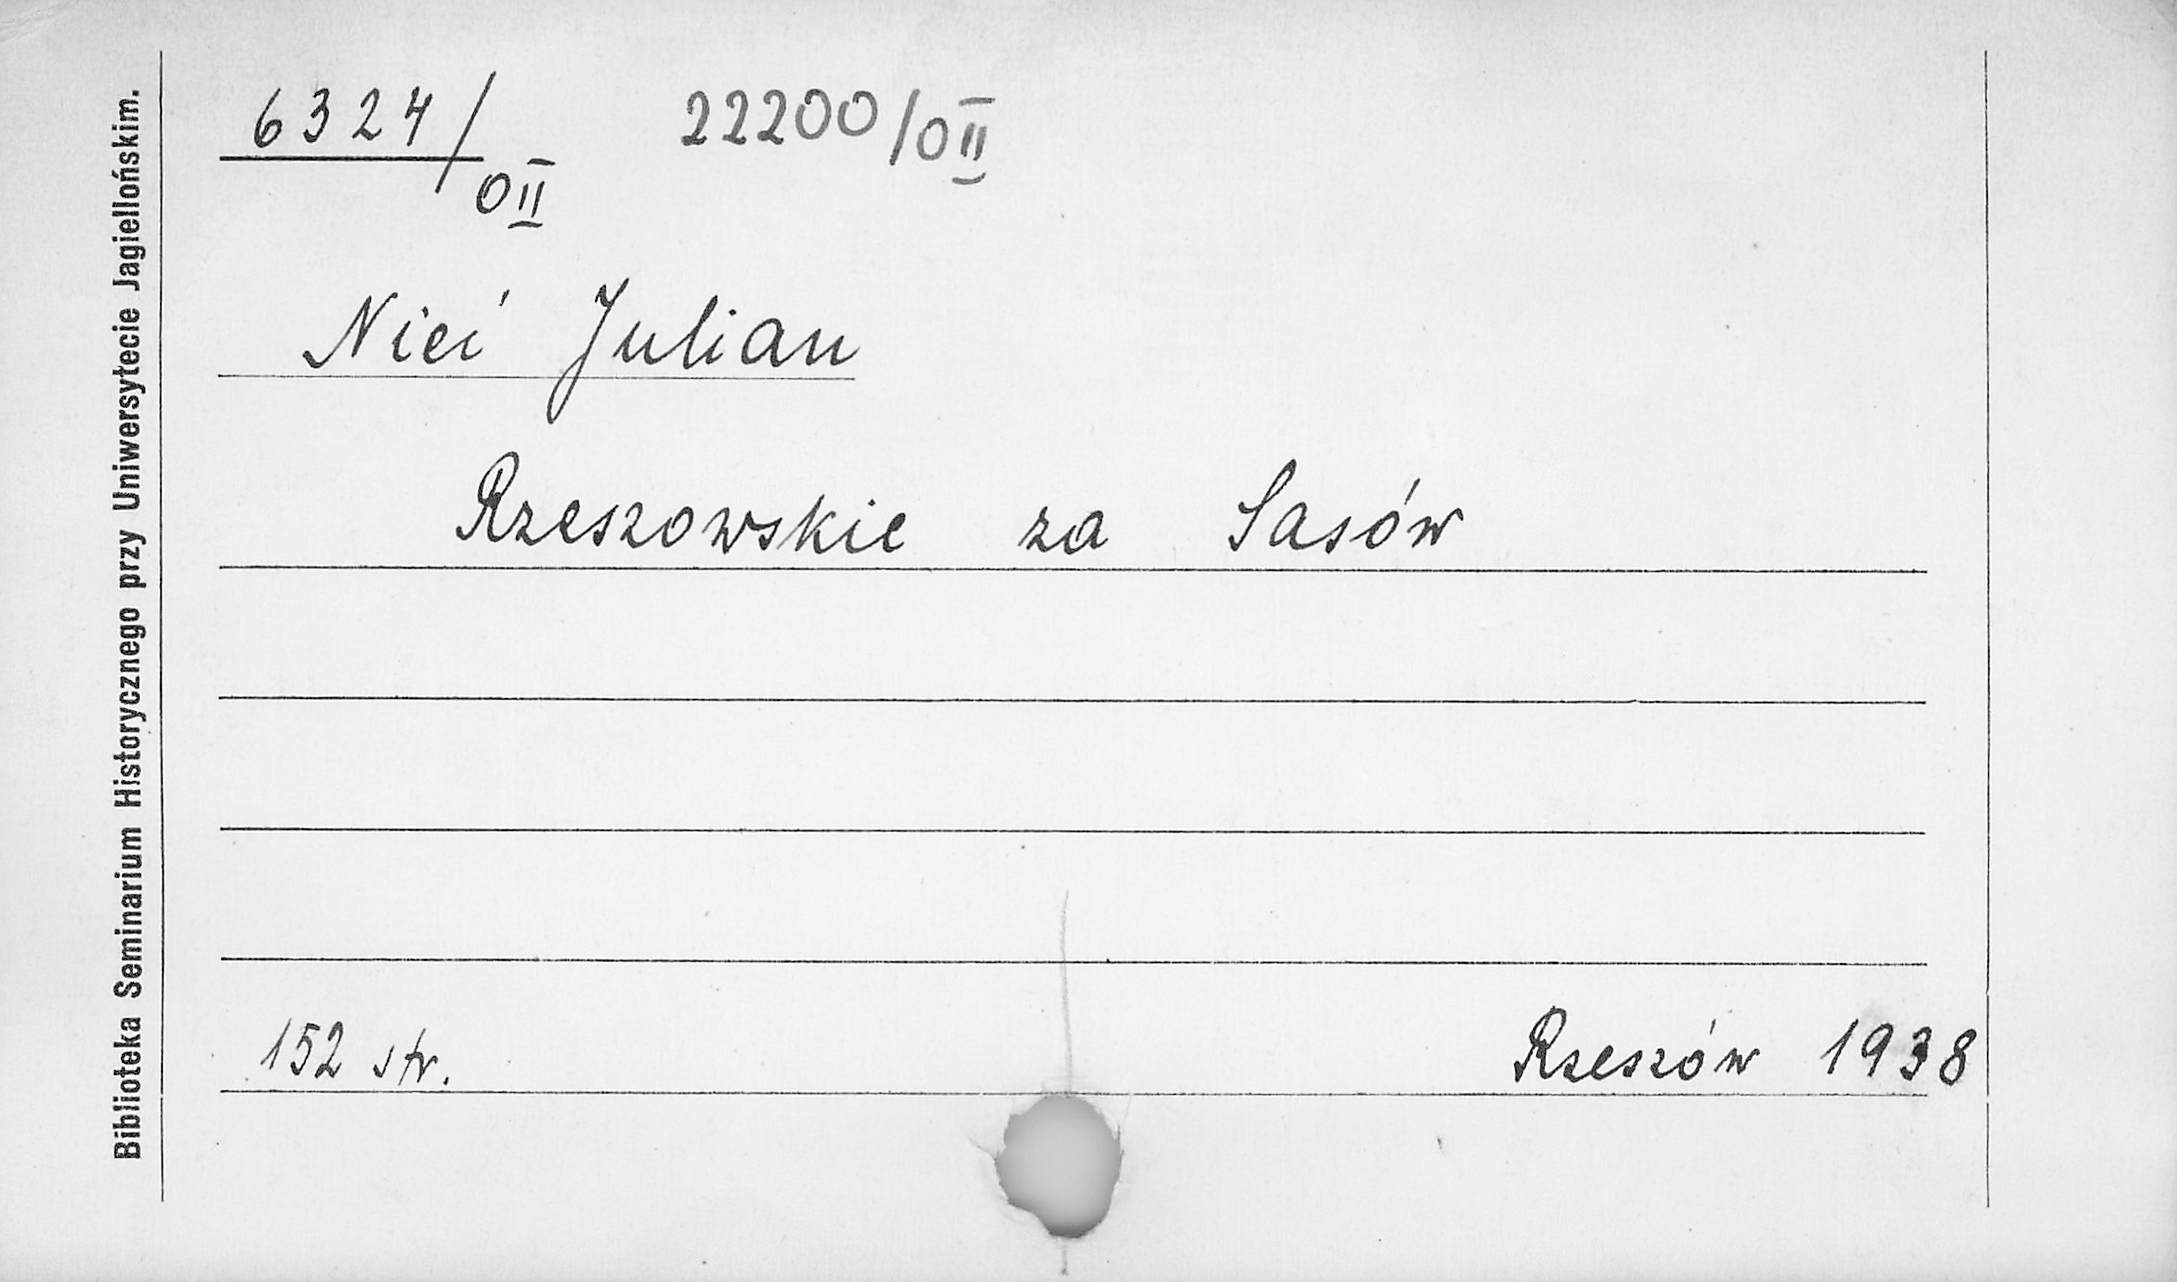 6324/OII 22200/OII
Nieć Julian
Rzeszowskie za Sasów
152 str. Rzeszów 1938
Biblioteka Seminarium Historycznego przy Uniwersytecie Jagiellońskim.